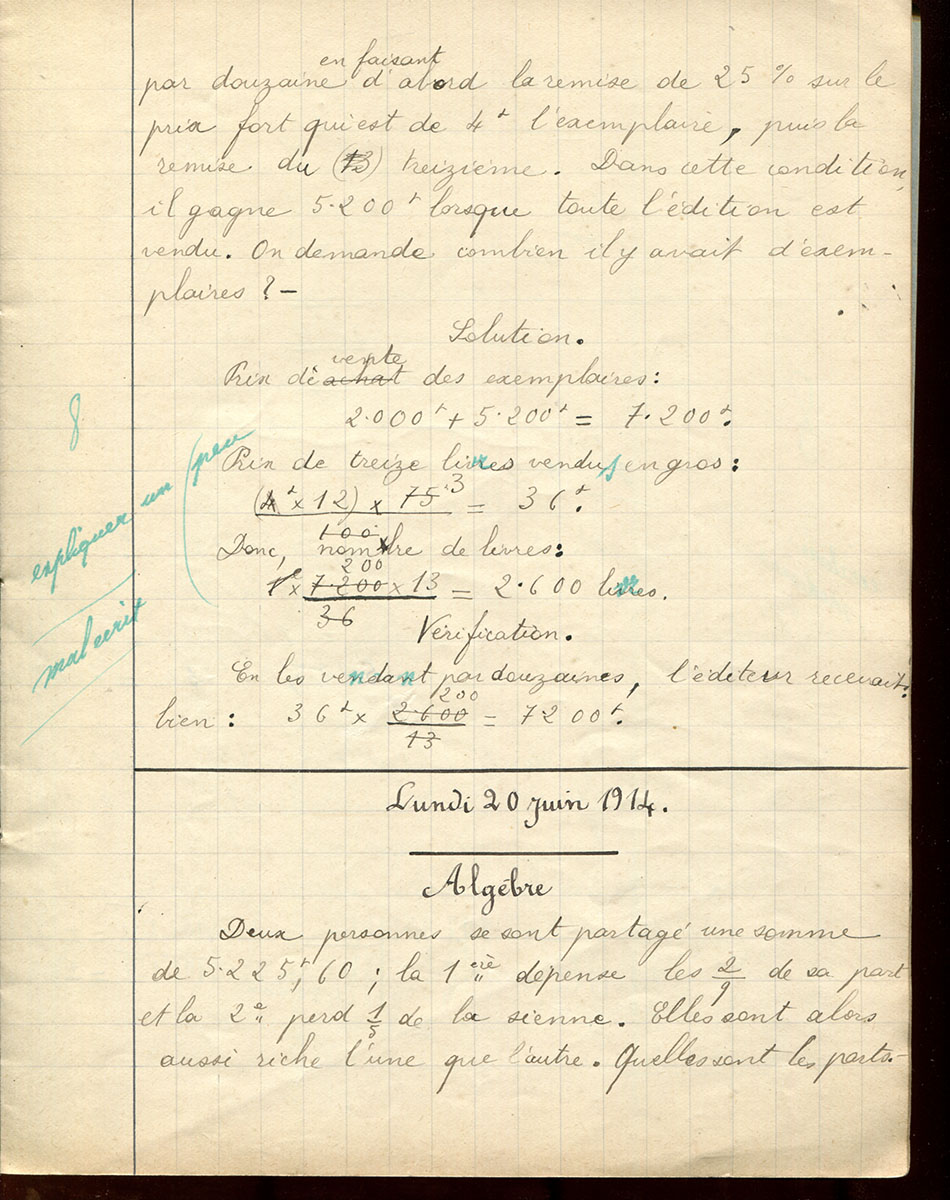 en faisant
par douzaine d'abord la remise de 25 % sur le
prix fort qui est de 4f l'exemplaire, puis la
remise du (13) treizième. Dans cette condition,
il gagne 5.200f lorsque toute l'édition est
vendu. On demande combien il y avait d'exem-
plaires ? —
Solution.
vente
Prix de achat des exemplaires :
2.000f + 5.200f = 7.200f.
Prix de treize livres vendus en gros :
(4f x 12) x 75 3 = 36f.
100
Donc, nombre de livres :
200
1f x 7.200 x 13 = 2.600 livres.
36
Vérification.
En les vendant par douzaines, l'éditeur recevait
200
bien : 36f x 2.600 = 7200f.
13
8
expliquer un peu
mal écrit
Lundi 20 juin 1914.
Algèbre
Deux personnes se sont partagé une somme
de 5.225f,60 ; la 1ère dépense les 2/9 de sa part
et la 2e perd 1/5 de la sienne. Elles sont alors
aussi riche l'une que l'autre. Quelles sont les parts.-